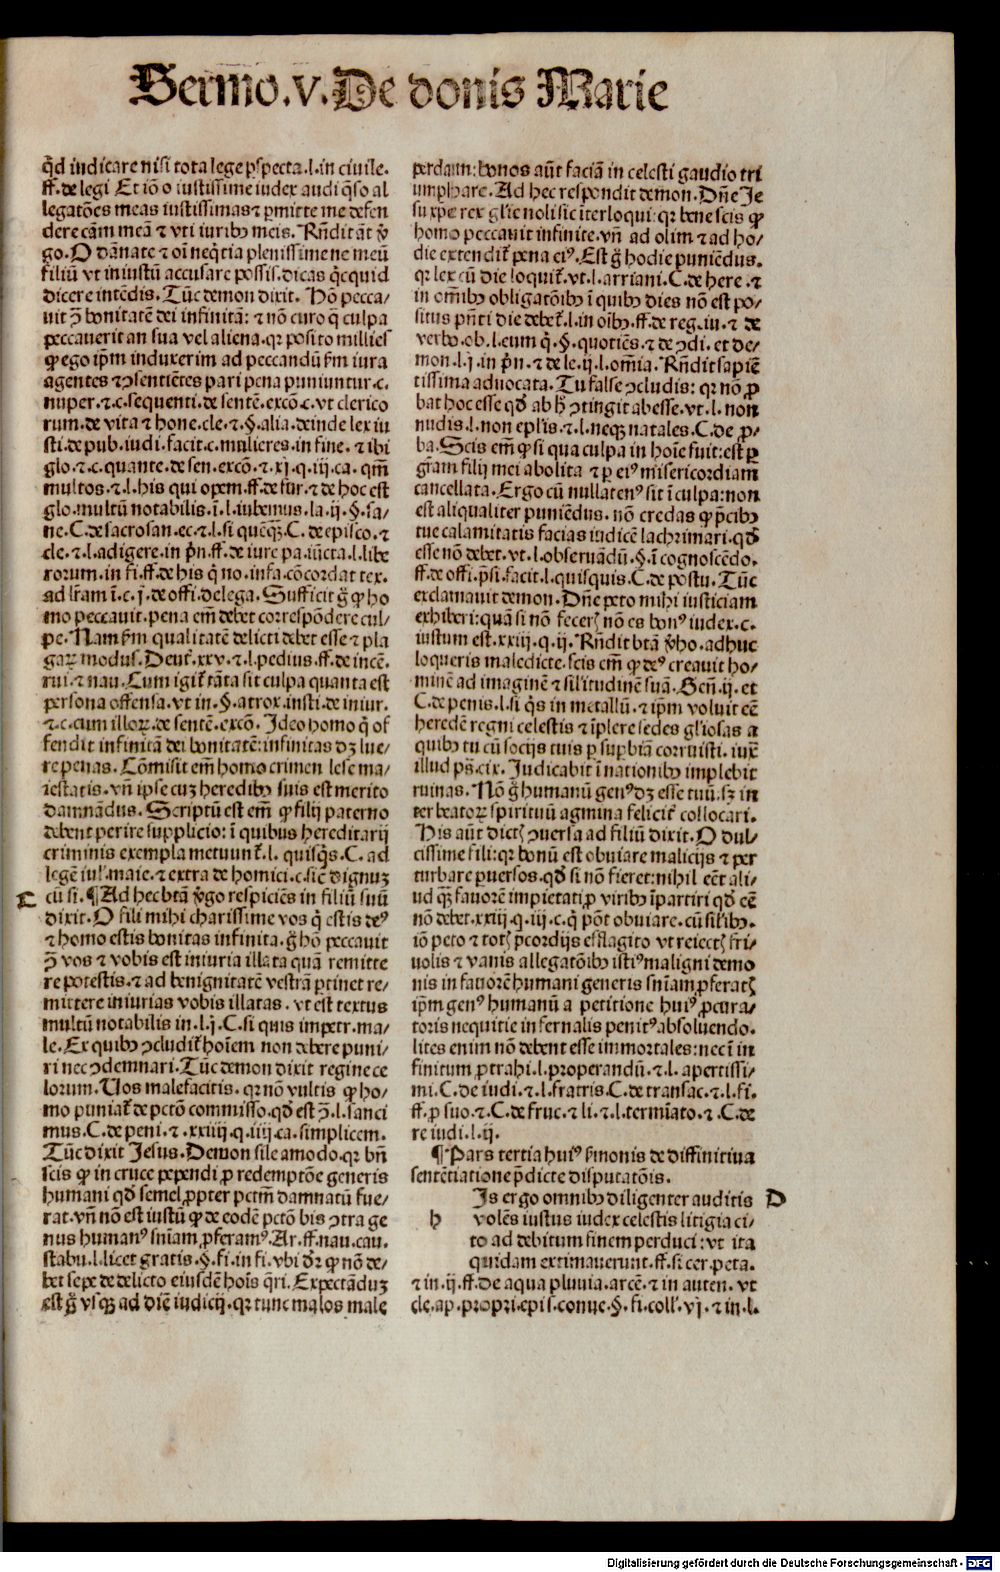 Sermo.v.De donis Marie
q̄d iudicare nisi tota lege ꝑspecta.l.in ciuile.
ff.de legi Et iō o iustissime iudex audi q̄so al
legatōes meas iustissimas ⁊ ꝑmitte me defen
dere cām meā ⁊ vti iuribꝰ meis. Rn̄dit aūt v̄
go. O dānate ⁊ oī neq̄tia plenissime ne meū
filiū vt iniustū accusare possis.dicas q̄cquid
dicere intēdis. Tūc demon dixit. Hō pecca/
uit ꝯ̄ bonitatē dei infinitā: ⁊ nō curo q̄ culpa
peccauerit an sua vel aliena.qꝛ posito millies
ꝙ ego ip̄m induxerim ad peccandū ẜm iura
agentes ⁊ ꝯsentiētes pari pena puniuntur.c.
nuper.⁊.c.sequenti.de sentē.excō.c.vt clerico
rum.de vita ⁊ hone.cle.⁊.§.alia.deinde lex iu
sti.de pub.iudi.facit.c.mulieres.in fine.⁊ ibi
glo.⁊.c.quante.de sen.excō.⁊.xj.q.iij.ca.qm̄
multos.⁊.l.his qui opem.ff.de fur.⁊ de hoc est
glo.multū notabilis.ī.l.iubemus.la.ij.§.sa/
ne.C.de sacrosan.ec.⁊.l.si quēqꝫ.C.de episco.⁊
cle.⁊.l.adigere.in pn̄.ff.de iure pa.iūcta.l.libe
rorum.in fi.ff.de his q̄ no.infa.cōcordat tex.
ad lr̄am ī.c.j.de offi.delega. Sufficit g̊ ꝙ ho
mo peccauit.pena em̄ debet correspōdere cul/
pe. Nam ẜm qualitatē delicti debet esse ⁊ pla
gaꝝ modus. Deut̄.xxv.⁊.l.pedius.ff.de incē.
rui.⁊ nau. Cum igit̄ tāta sit culpa quanta est
persona offensa.vt in.§.atrox.insti.de iniur.
⁊.c.cum illoꝝ.de sentē.excō. Ideo homo q̄ of
fendit infinitā dei bonitatē:infinitas dꝫ lue/
re penas. Cōmisit em̄ homo crimen lese ma/
iestatis.vn̄ ipse cuꝫ heredibꝰ suis est merito
damnādus. Scriptū est em̄ ꝙ filij paterno
debent perire supplicio:ī quibus hereditarij
criminis exempla metuunt̄.l.quisq̄s.C.ad
legē iul.maie.⁊ extra de homici.c.sic̄ dignuꝫ
E
cū si.¶Ad hec btā v̄go respiciēs in filiū suū
dixit. O fili mihi charissime vos q̄ estis deꝰ
⁊ homo estis bonitas infinita.g̊ hō peccauit
ꝯ̄ vos ⁊ vobis est iniuria illata quā remitte
re potestis.⁊ ad benignitatē vestrā ꝑtinet re/
mittere iniurias vobis illatas.vt est textus
multū notabilis in.l.j.C.si quis impetr.ma/
le. Ex quibꝰ ꝯcludit̄ hoīem non debere puni/
ri nec ꝯdemnari. Tūc demon dixit regine ce
lorum. Uos malefacitis.qꝛ nō vultis ꝙ ho/
mo puniat̄ de pctō commisso.qd̄ est ꝯ̄.l.sanci
mus.C.de peni.⁊.xxiiij.q.iiij.ca.simplicem.
Tūc dixit Jesus. Demon sile amodo.qꝛ bn̄
scis ꝙ in cruce pependi ꝓ redemptōe generis
humani qd̄ semel ꝓpter pctm̄ damnatū fue/
rat.vn̄ nō est iustū ꝙ de eodē pctō bis ꝯtra ge
nus humanꝰ sn̄iam ꝓferamꝰ. Ar.ff.nau.cau.
stabu.l.licet gratis.§.fi.in fi.vbi dr̄ ꝙ nō de/
bet sepe de delicto eiusdē hoīs q̄ri. Expectāduꝫ
est g̊ vsqꝫ ad diē iudicij.qꝛ tunc malos male
perdam:bonos aūt faciā in celesti gaudio tri
umphare. Ad hec respondit demon. Dn̄e Je
su xp̄e rex gl̄ie noli sic īterloqui:qꝛ bene scis ꝙ
homo peccauit infinite.vn̄ ad olim ⁊ ad ho/
die extendit̄ pena eiꝰ. Est g̊ hodie puniēdus.
qꝛ lex cū die loquit̄.vt.l.arriani.C.de here.⁊
in om̄ibꝰ obligatōibꝰ ī quibꝰ dies nō est po/
situs pn̄ti die debet̄.l.in oībꝰ.ff.de reg.iu.⁊ de
verbo.ob.l.eum q̄.§.quotiēs.⁊ de ꝯdi.et de/
mon.l.j.in pn̄.⁊ de le.ij.l.om̄ia. Rn̄dit sapiē
tissima aduocata. Tu false ꝯcludis: qꝛ nō ꝓ
bat hoc esse qd̄ ab h̊ ꝯtingit abesse.vt.l.non
nudis.l.non ep̄lis.⁊.l.neqꝫ natales.C.de ꝓ/
ba. Scis em̄ ꝙ si qua culpa in hoīe fuit:est ꝑ
gr̄am filij mei abolita ⁊ ꝑ eiꝰ misericordiam
cancellata. Ergo cū nullatenꝰ sit ī culpa:non
est aliqualiter puniēdus. nō credas ꝙ p̄cibꝰ
tue calamitatis facias iudicē lachrimari.qd̄
esse nō debet.vt.l.obseruādū.§.ī cognoscēdo.
ff.de offi.p̄si.facit.l.quisquis.C.de postu. Tūc
exclamauit demon. Dn̄e peto mihi iusticiam
exhiberi:quā si nō feceris nō es bonꝰ iudex.c.
iustum est.xxiij.q.ij. Rn̄dit btā v̄go.adhuc
loqueris maledicte.scis em̄ ꝙ deꝰ creauit ho/
minē ad imaginē ⁊ sil'itudinē suā. Gen̄.ij. et
C.de penis.l.si q̄s in metallū.⁊ ip̄m voluit eē
heredē regni celestis ⁊ īplere sedes gl'iosas a
quibꝰ tu cū socijs tuis ꝑ suꝑbiā corruisti. iux̄
illud ps̄.cix. Judicabit ī nationibꝰ implebit
ruinas. Nō g̊ humanū genꝰ dꝫ esse tuū:sꝫ in
ter beatoꝝ spirituū agmina felicit̄ collocari.
His aūt dictis ꝯuersa ad filiū dixit. O dul/
cissime fili:qꝛ bonū est obuiare malicijs ⁊ per
turbare ꝑuersos.qd̄ si nō fieret:nihil eēt ali/
ud qꝫ fauorē impietati ꝓ viribꝰ īpartiri qd̄ eē
nō debet.xxiij.q.iij.c.q̄ pōt obuiare.cū sil'ibꝰ.
iō peto ⁊ totis p̄cordijs efflagito vt reiectis fri/
uolis ⁊ vanis allegatōibꝰ istiꝰ maligni demo
nis in fauorē humani generis sn̄iam ꝓferatis
ip̄m genꝰ humanū a petitione huiꝰ ꝓcura/
toris nequitie infernalis penitꝰ absoluendo.
lites enim nō debent esse immortales:nec ī in
finitum ꝓtrahi.l.properandū.⁊.l.apertissi/
mi.C.de iudi.⁊.l.fratris.C.de transac.⁊.l.fi.
ff.ꝓ suo.⁊.C.de fruc.⁊ li.⁊.l.termīato.⁊.C.de
re iudi.l.ij.
¶Pars tertia huiꝰ ẜmonis de diffinitiua
sentētiatione p̄dicte disputatōis.
h Is ergo omnibꝰ diligenter auditis D
volēs iustus iudex celestis litigia ci/
to ad debitum finem perduci:vt ita
quidam extimauerunt.ff.si cer.peta.
⁊ in.ij.ff.de aqua pluuia.arcē.⁊ in auten.vt
cle.ap.propri.epis.conue.§.fi.coll'.vj.⁊ in.l.
Digitalisierung gefördert durch die Deutsche Forschungsgemeinschaft - DFG